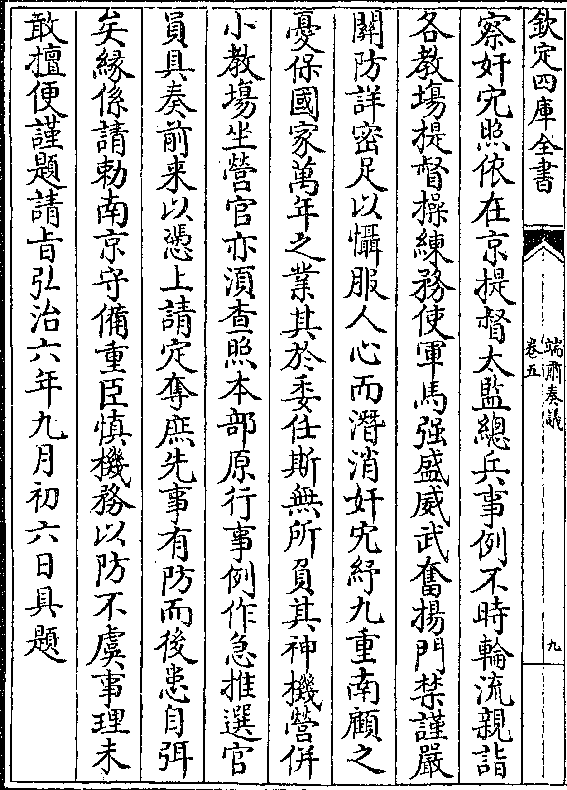 欽定四庫全書
端肅奏議
卷五
九
察奸宄照依在京提督太監總兵事例不時輪流親詣
各教場提督操練務使軍馬强盛威武奮揚門禁謹嚴
關防詳密足以懾服人心而潛消奸宄紓九重南顧之
憂保國家萬年之業其於委任斯無所負其神機營併
小教場坐營官亦須查照本部原行事例作急推選官
員具奏前來以憑上請定奪庶先事有防而後患自弭
矣緣係請勅南京守備重臣慎機務以防不虞事理未
敢擅便謹題請旨弘治六年九月初六日具題